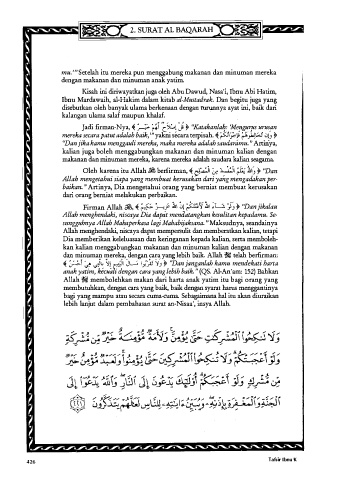 2. SURAT AL BAQARAH
mu.'" Setelah itu mereka pun menggabung makanan dan minuman mereka
dengan makanan dan minuman anak yatim.
Kisah ini diriwayatkan juga oleh Abu Dawud, Nasa'i, Ibnu Abi Hatim,
Ibnu Mardawaih, al-Hakim dalam kitab al-Mustadrak. Dan begitu juga yang
disebutkan oleh banyak ulama berkenaan dengan turunnya ayat ini, baik dari
kalangan ulama salaf maupun khalaf.
Jadi firman-Nya, ﴿ قُلْ إِصْلَاحٌ لَّهُمْ خَيْرٌ ﴾ "Katakanlah: 'Mengurus urusan
mereka secara patut adalah baik,'" yakni secara terpisah. ﴿ وَإِن تُخَالِطُوهُمْ فَإِخْوَانُكُمْ ﴾
"Dan jika kamu menggauli mereka, maka mereka adalah saudaramu." Artinya,
kalian juga boleh menggabungkan makanan dan minuman kalian dengan
makanan dan minuman mereka, karena mereka adalah saudara kalian seagama.
Oleh karena itu Allah ﷻ berfirman, ﴿ وَاللَّهُ يَعْلَمُ الْمُفْسِدَ مِنَ الْمُصْلِحِ ﴾ "Dan
Allah mengetahui siapa yang membuat kerusakan dari yang mengadakan per-
baikan." Artinya, Dia mengetahui orang yang berniat membuat kerusakan
dari orang berniat melakukan perbaikan.
Firman Allah ﷻ, ﴿ وَلَوْ شَاءَ اللَّهُ لَأَعْنَتَكُمْ إِنَّ اللَّهَ عَزِيزٌ حَكِيمٌ ﴾ "Dan jikalau
Allah menghendaki, niscaya Dia dapat mendatangkan kesulitan kepadamu. Se-
sungguhnya Allah Mahaperkasa lagi Mahabijaksana." Maksudnya, seandainya
Allah menghendaki, niscaya dapat mempersulit dan memberatkan kalian, tetapi
Dia memberikan keleluasaan dan keringanan kepada kalian, serta memboleh-
kan kalian menggabungkan makanan dan minuman kalian dengan makanan
dan minuman mereka, dengan cara yang lebih baik. Allah ﷻ telah berfirman:
﴿ وَلَا تَقْرَبُوا مَالَ الْيَتِيمِ إِلَّا بِالَّتِي هِيَ أَحْسَنُ ﴾ "Dan janganlah kamu mendekati harta
anak yatim, kecuali dengan cara yang lebih baik." (QS. Al-An'am: 152) Bahkan
Allah ﷻ membolehkan makan dari harta anak yatim itu bagi orang yang
membutuhkan, dengan cara yang baik, baik dengan syarat harus menggantinya
bagi yang mampu atau secara cuma-cuma. Sebagaimana hal itu akan diuraikan
lebih lanjut dalam pembahasan surat an-Nisaa', insya Allah.
وَلَا تَنكِحُوا الْمُشْرِكَاتِ حَتَّىٰ يُؤْمِنَّ وَلَأَمَةٌ مُّؤْمِنَةٌ خَيْرٌ مِّن مُّشْرِكَةٍ
وَلَوْ أَعْجَبَتْكُمْ وَلَا تُنكِحُوا الْمُشْرِكِينَ حَتَّىٰ يُؤْمِنُوا وَلَعَبْدٌ مُّؤْمِنٌ خَيْرٌ
مِّن مُّشْرِكٍ وَلَوْ أَعْجَبَكُمْ أُولَٰئِكَ يَدْعُونَ إِلَى النَّارِ وَاللَّهُ يَدْعُو إِلَى
الْجَنَّةِ وَالْمَغْفِرَةِ بِإِذْنِهِ وَيُبَيِّنُ آيَاتِهِ لِلنَّاسِ لَعَلَّهُمْ يَتَذَكَّرُونَ ﴿٢٢١﴾
426
Tafsir Ibnu K